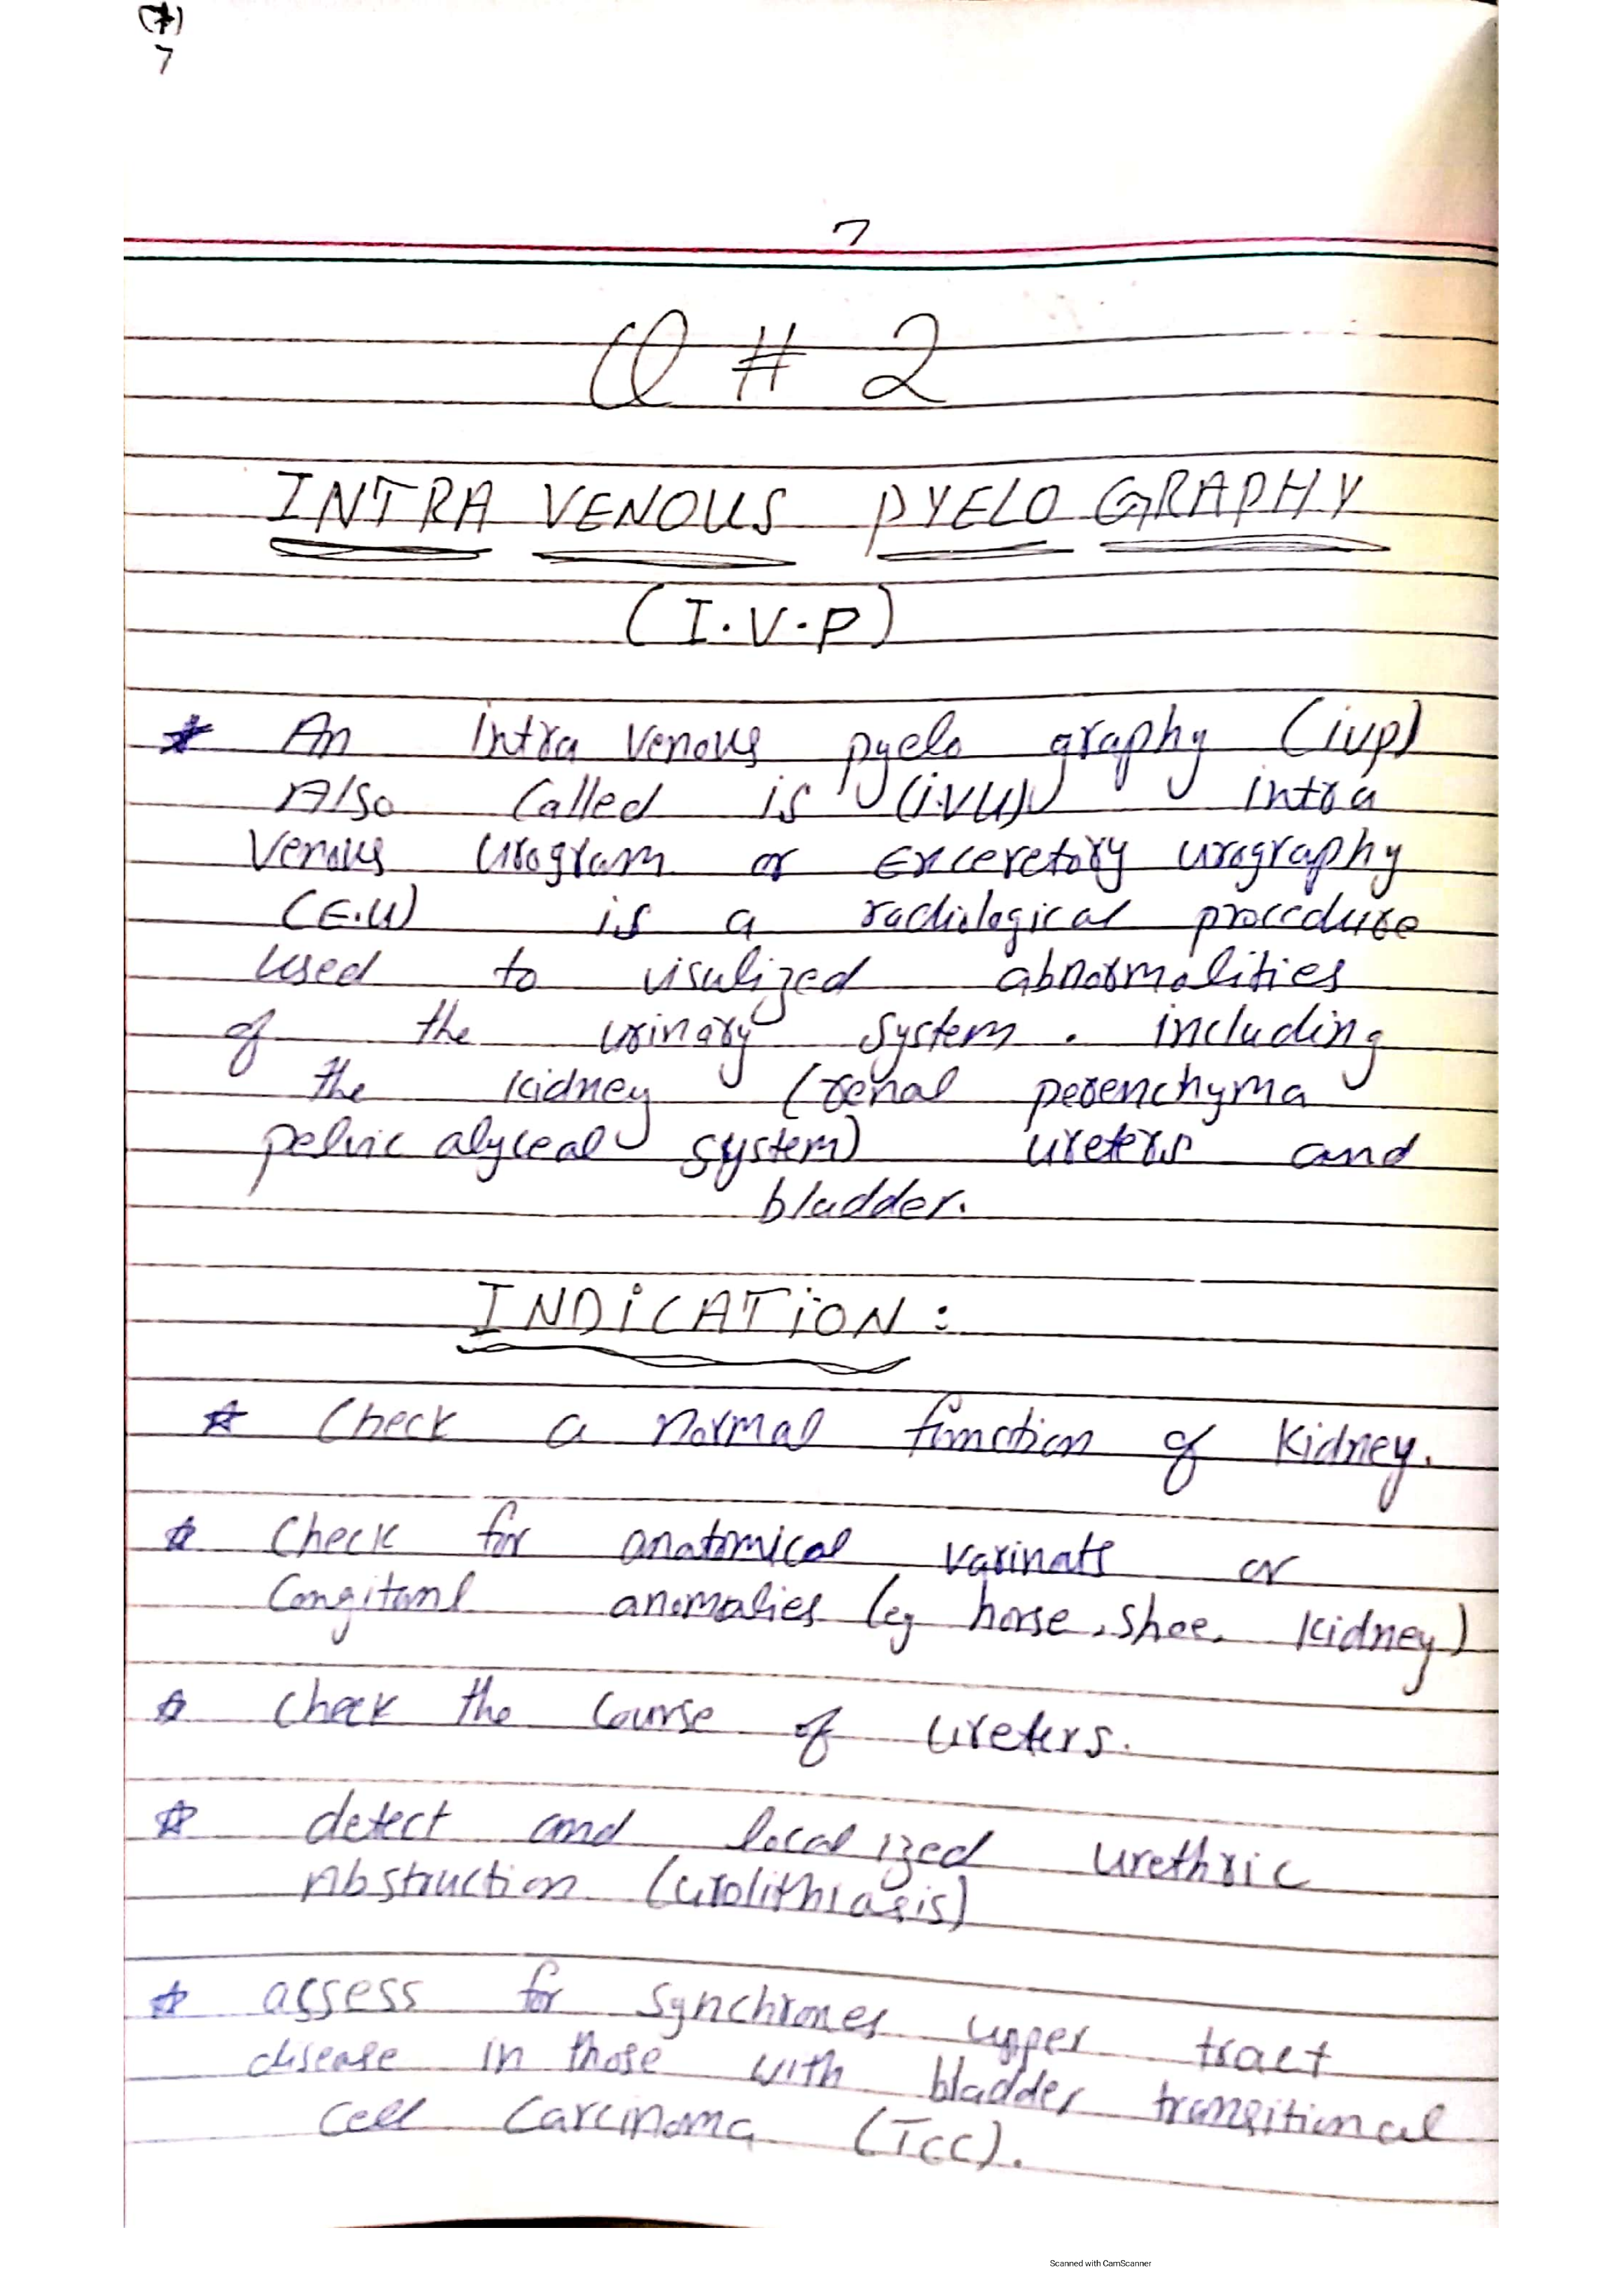 (7)
7
7
Q # 2
INTRA VENOUS PYELO GRAPHY
(I.V.P)
* An intra venous pyelo graphy (ivp)
Also Called is (i.v.u) intra
Venous Urogram or Exceretory urography
(E.U) is a radiological procedure
used to visulized abnormalities
of the urinary system. including
the kidney (renal perenchyma
pelvic alyceal system) ureters and
bladder.
INDiCATiON:
* Check a normal function of kidney.
* Check for anatomical varinats or
Congitanl anomalies (eg horse.shoe. kidney)
* Check the Course of Ureters.
* detect and localized Urethric
Abstruction (Urolithiasis)
* assess for Synchrones upper tract
disease in those with bladder transitional
Cell Carcinoma (TCC).
Scanned with CamScanner